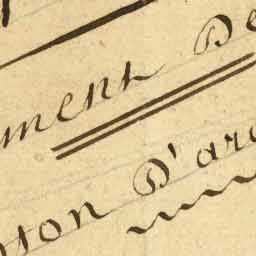 ment De
ton D'arc